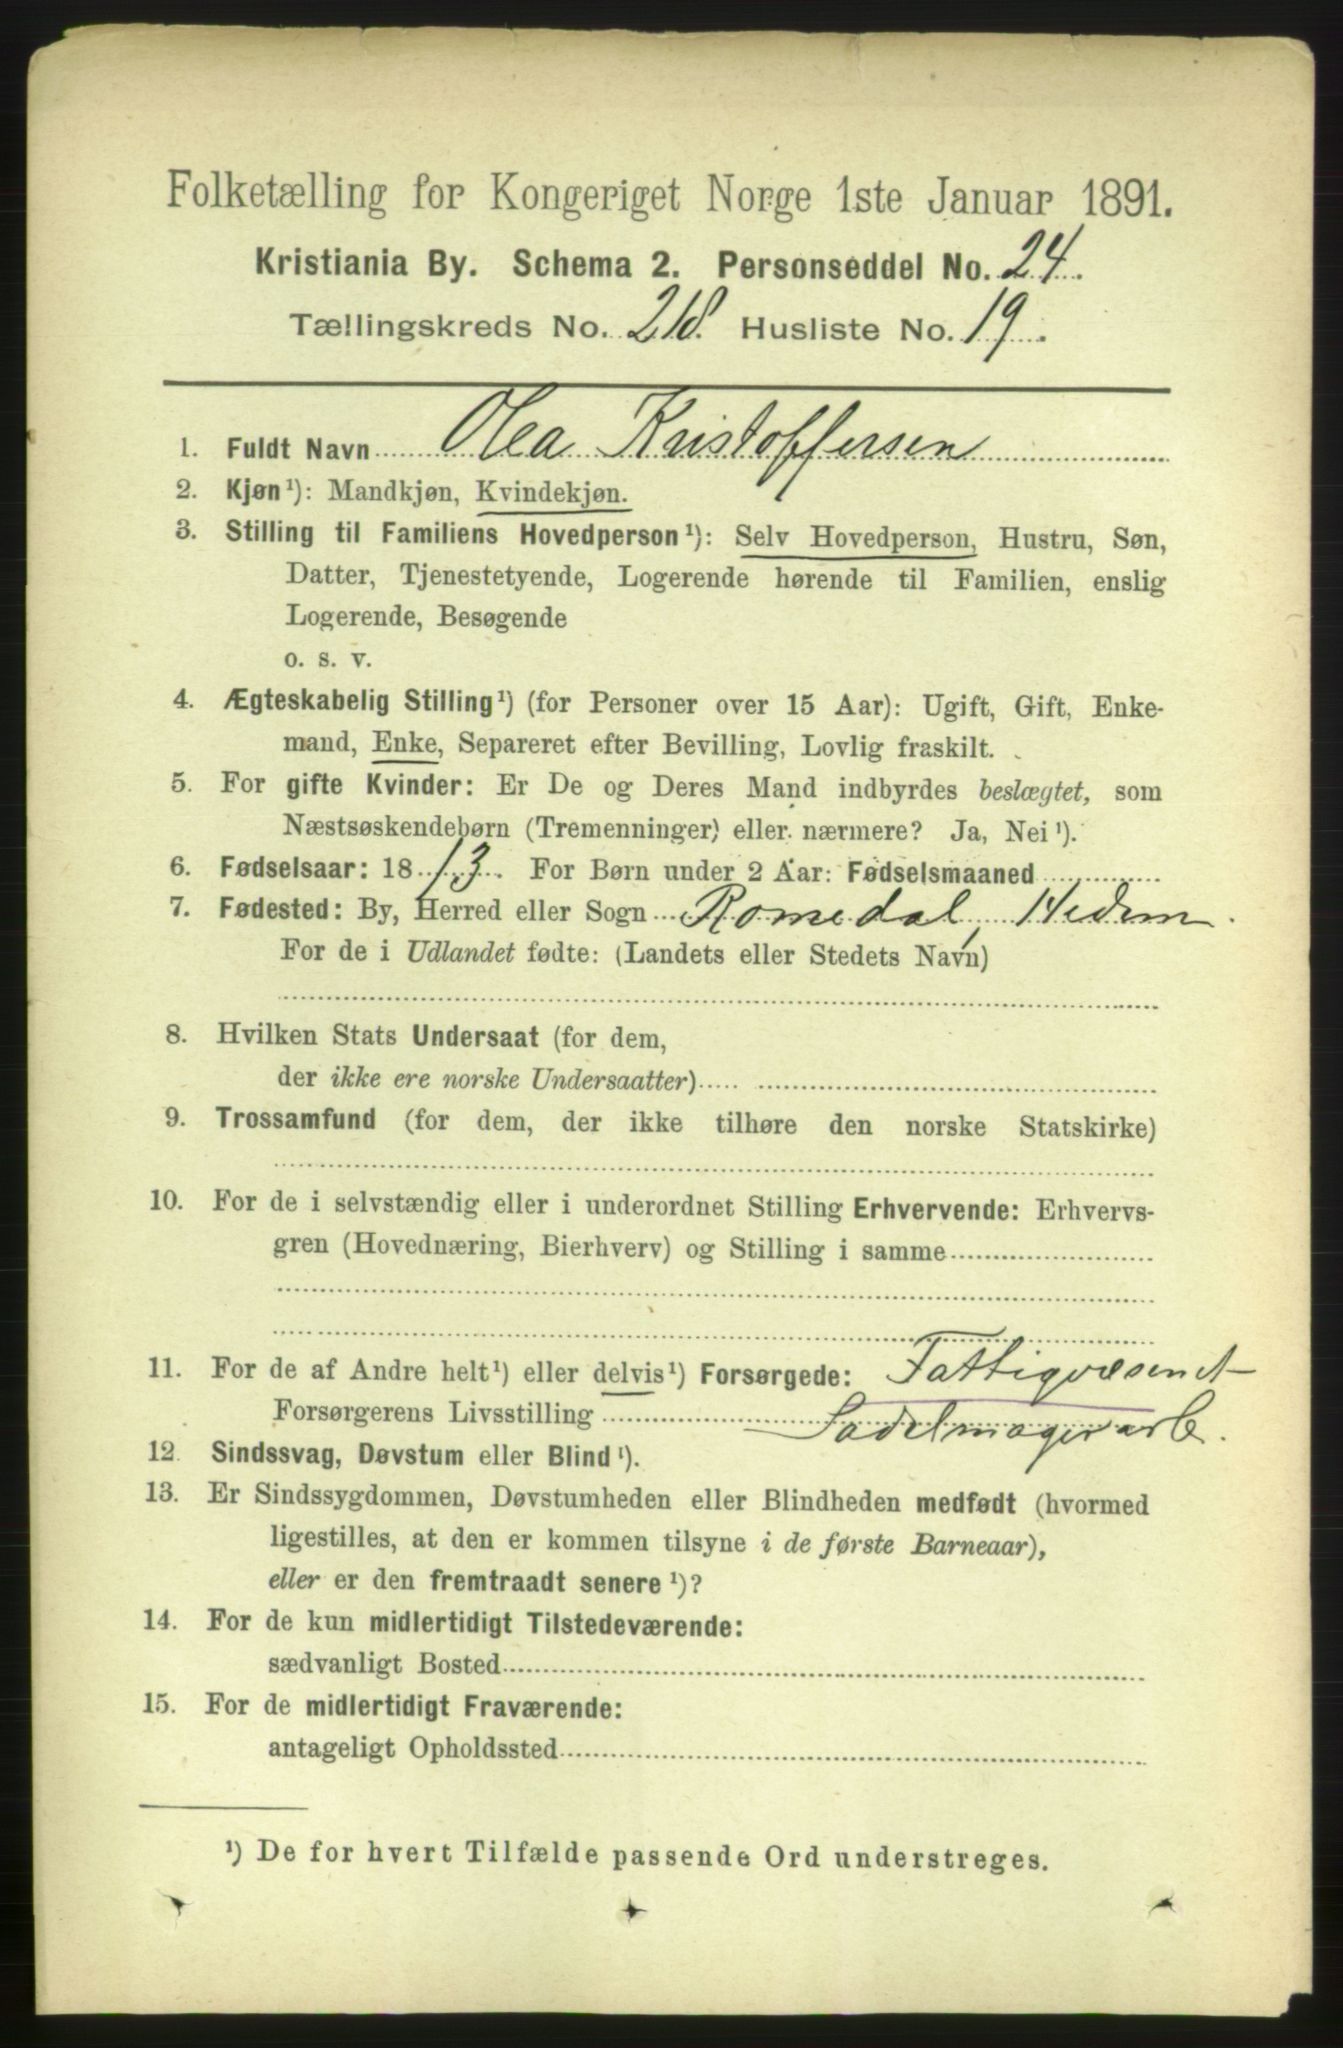 Folketælling for Kongeriget Norge 1ste Januar 1891.
Kristiania By. Schema 2. Personseddel No. 24.
Tællingskreds No. 218. Husliste No. 19.
1. Fuldt Navn Olea Kristoffersen
2. Kjøn¹): Mandkjøn, Kvindekjøn.
3. Stilling til Familiens Hovedperson¹): Selv Hovedperson, Hustru, Søn,
Datter, Tjenestetyende, Logerende hørende til Familien, enslig
Logerende, Besøgende
o. s. v.
4. Ægteskabelig Stilling¹) (for Personer over 15 Aar): Ugift, Gift, Enke-
mand, Enke, Separeret efter Bevilling, Lovlig fraskilt.
5. For gifte Kvinder: Er De og Deres Mand indbyrdes beslægtet, som
Næstsøskendebørn (Tremenninger) eller nærmere? Ja, Nei¹).
6. Fødselsaar: 1813. For Børn under 2 Aar: Fødselsmaaned
7. Fødested: By, Herred eller Sogn Romedal, Hedem.
For de i Udlandet fødte: (Landets eller Stedets Navn)
8. Hvilken Stats Undersaat (for dem,
der ikke ere norske Undersaatter)
9. Trossamfund (for dem, der ikke tilhøre den norske Statskirke)
10. For de i selvstændig eller i underordnet Stilling Erhvervende: Erhvervs-
gren (Hovednæring, Bierhverv) og Stilling i samme
11. For de af Andre helt¹) eller delvis¹) Forsørgede: Fattigvæsenet
Forsørgerens Livsstilling Sadelmagerarb.
12. Sindssvag, Døvstum eller Blind¹).
13. Er Sindssygdommen, Døvstumheden eller Blindheden medfødt (hvormed
ligestilles, at den er kommen tilsyne i de første Barneaar),
eller er den fremtraadt senere¹)?
14. For de kun midlertidigt Tilstedeværende:
sædvanligt Bosted
15. For de midlertidigt Fraværende:
antageligt Opholdssted
¹) De for hvert Tilfælde passende Ord understreges.